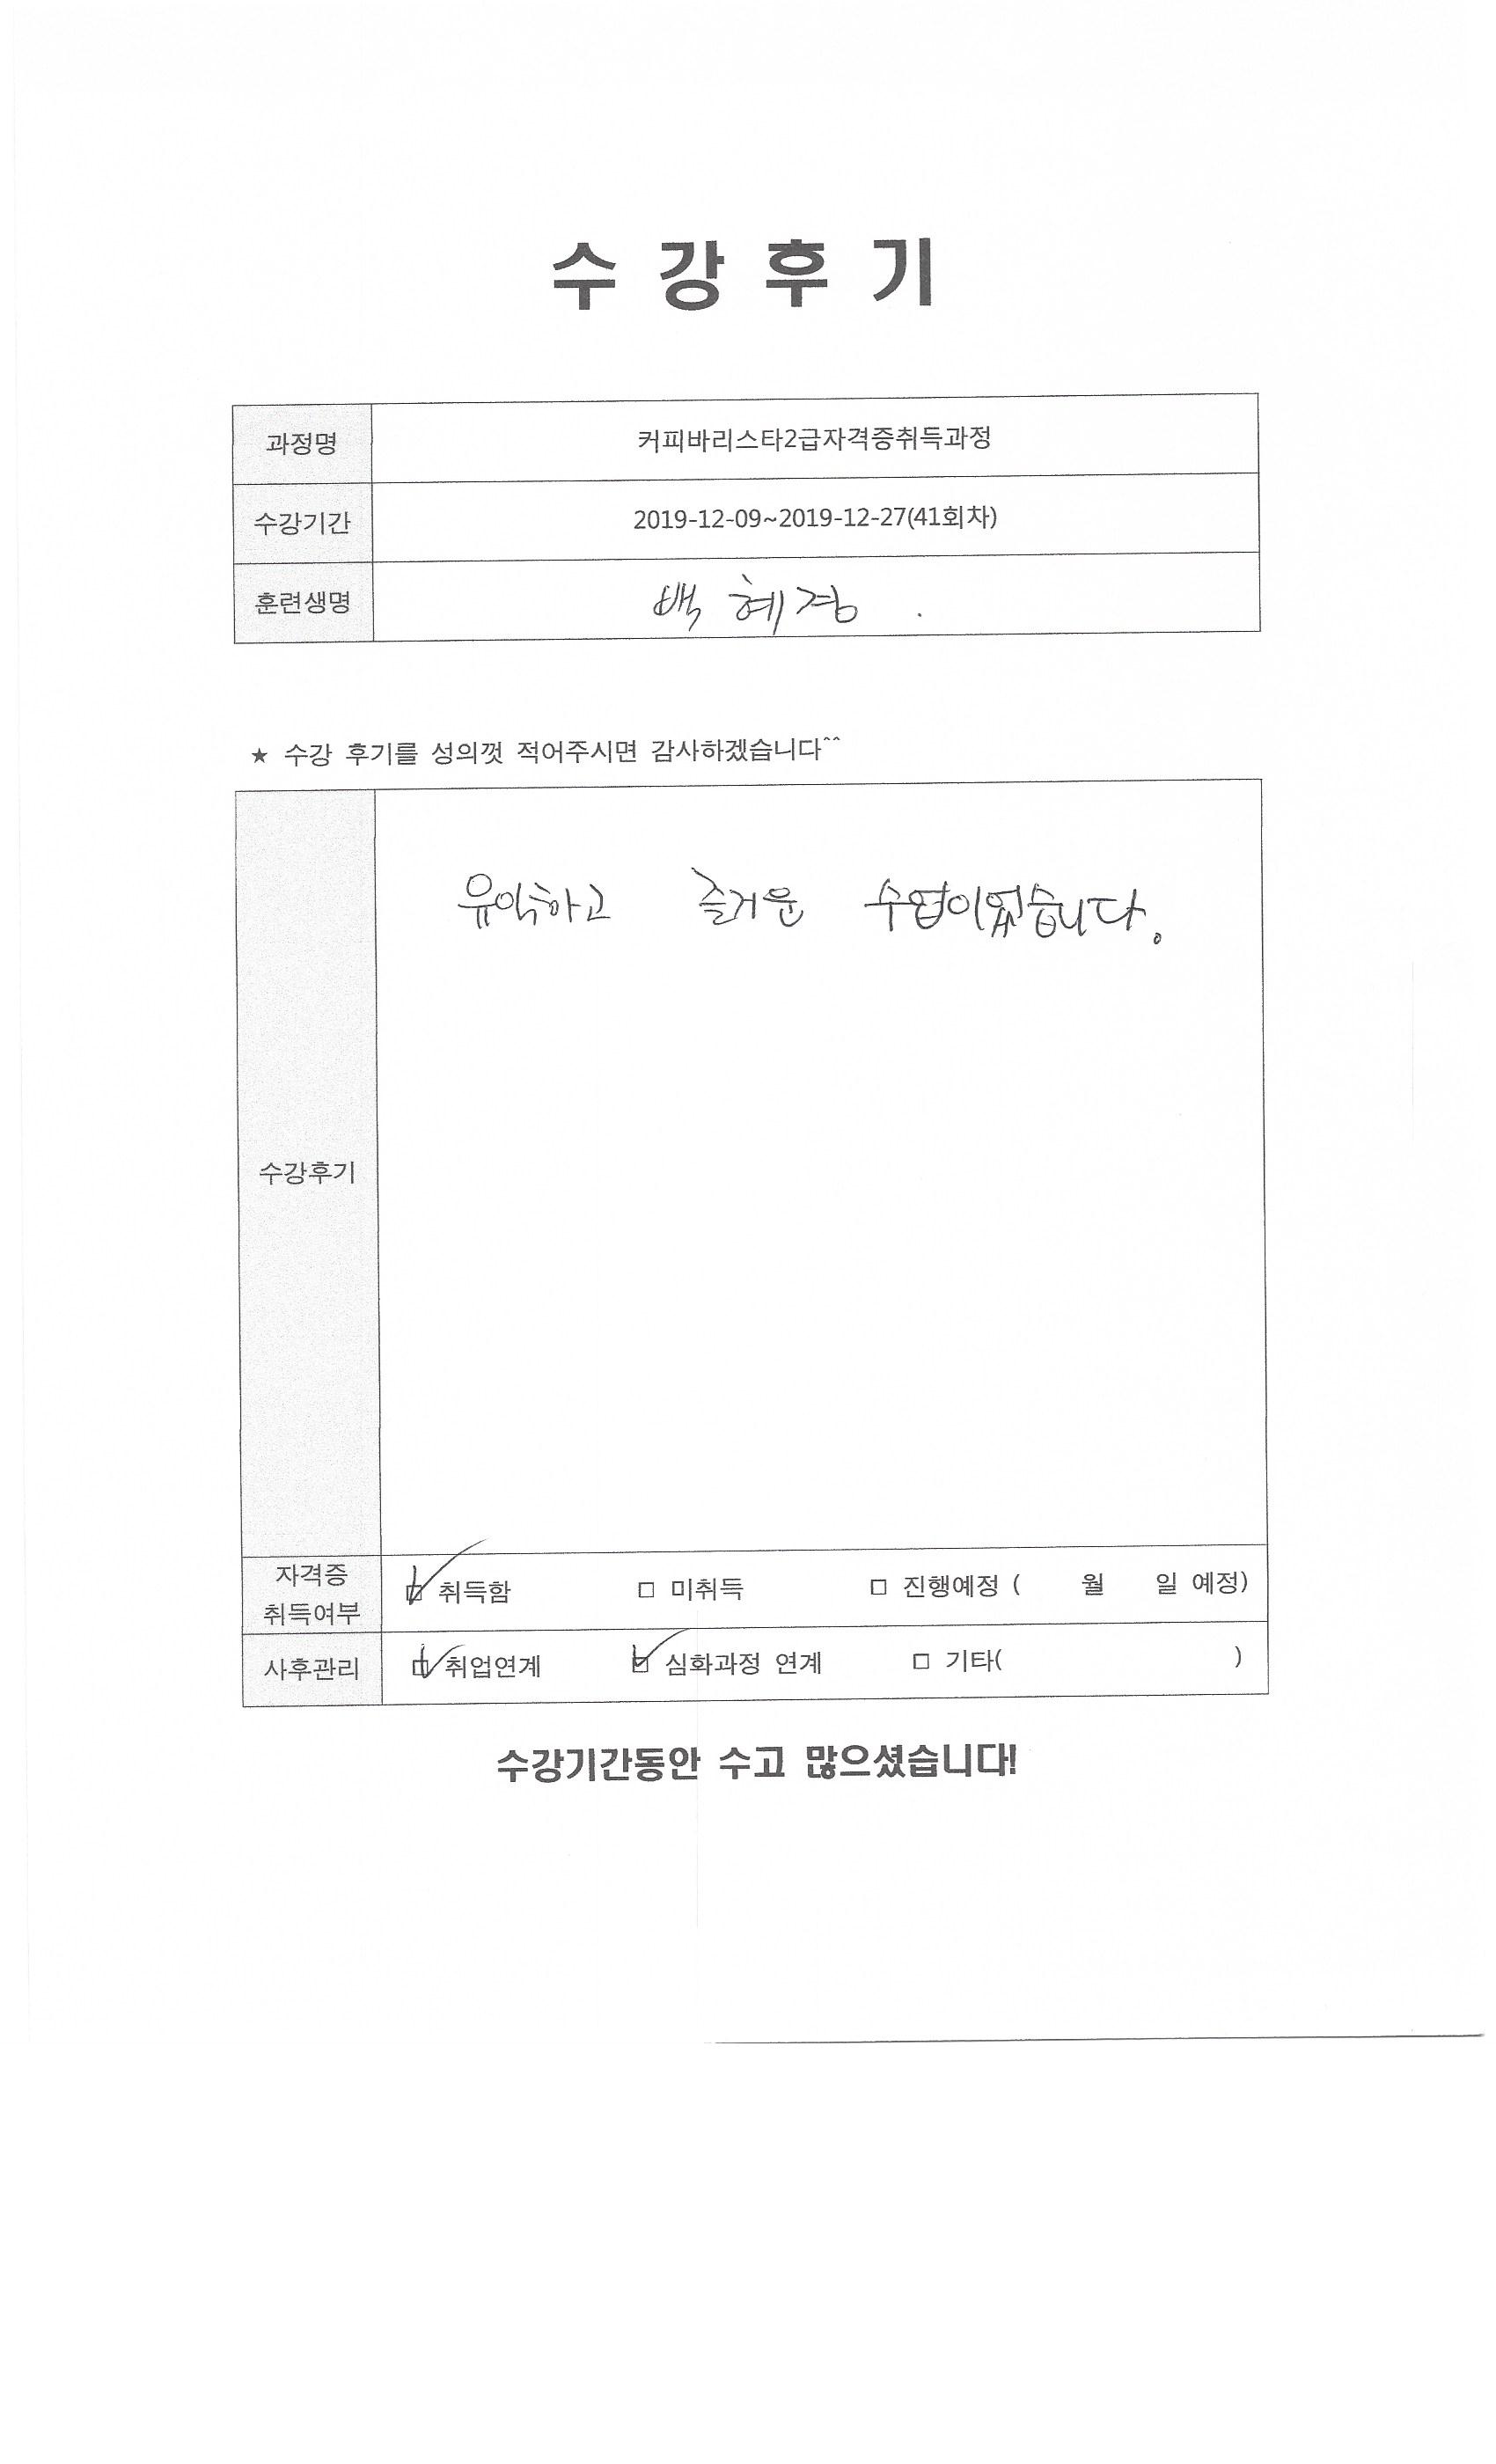 수 강 후 기
과정명 커피바리스타2급자격증취득과정
수강기간 2019-12-09~2019-12-27(41회차)
훈련생명 백 혜경 .
★ 수강 후기를 성의껏 적어주시면 감사하겠습니다^^
유익하고 즐거운 수업이였습니다.
수강후기
자격증
취득여부 ☑ 취득함 □ 미취득 □ 진행예정 ( 월 일 예정)
사후관리 ☑ 취업연계 ☑ 심화과정 연계 □ 기타( )
수강기간동안 수고 많으셨습니다!